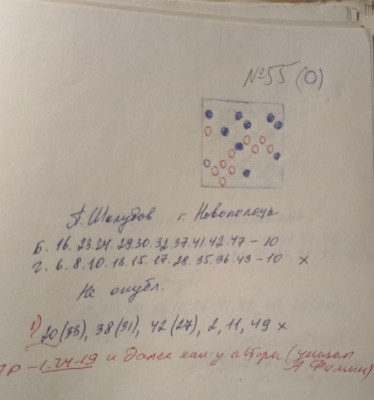 №55 (О)
А. Шакубов г. Новополоцк
Б. 16. 23. 24. 29. 30. 32. 37. 41. 42. 47 – 10
Ч. 6. 8. 10. 13. 15. 27. 28. 35. 36. 43 – 10 х
Не опубл.
1) 20 (33), 38 (31), 42 (27), 2, 11, 49 х
ПР – 1. 24-19 и далее как у автора (указал
А. Фомин)